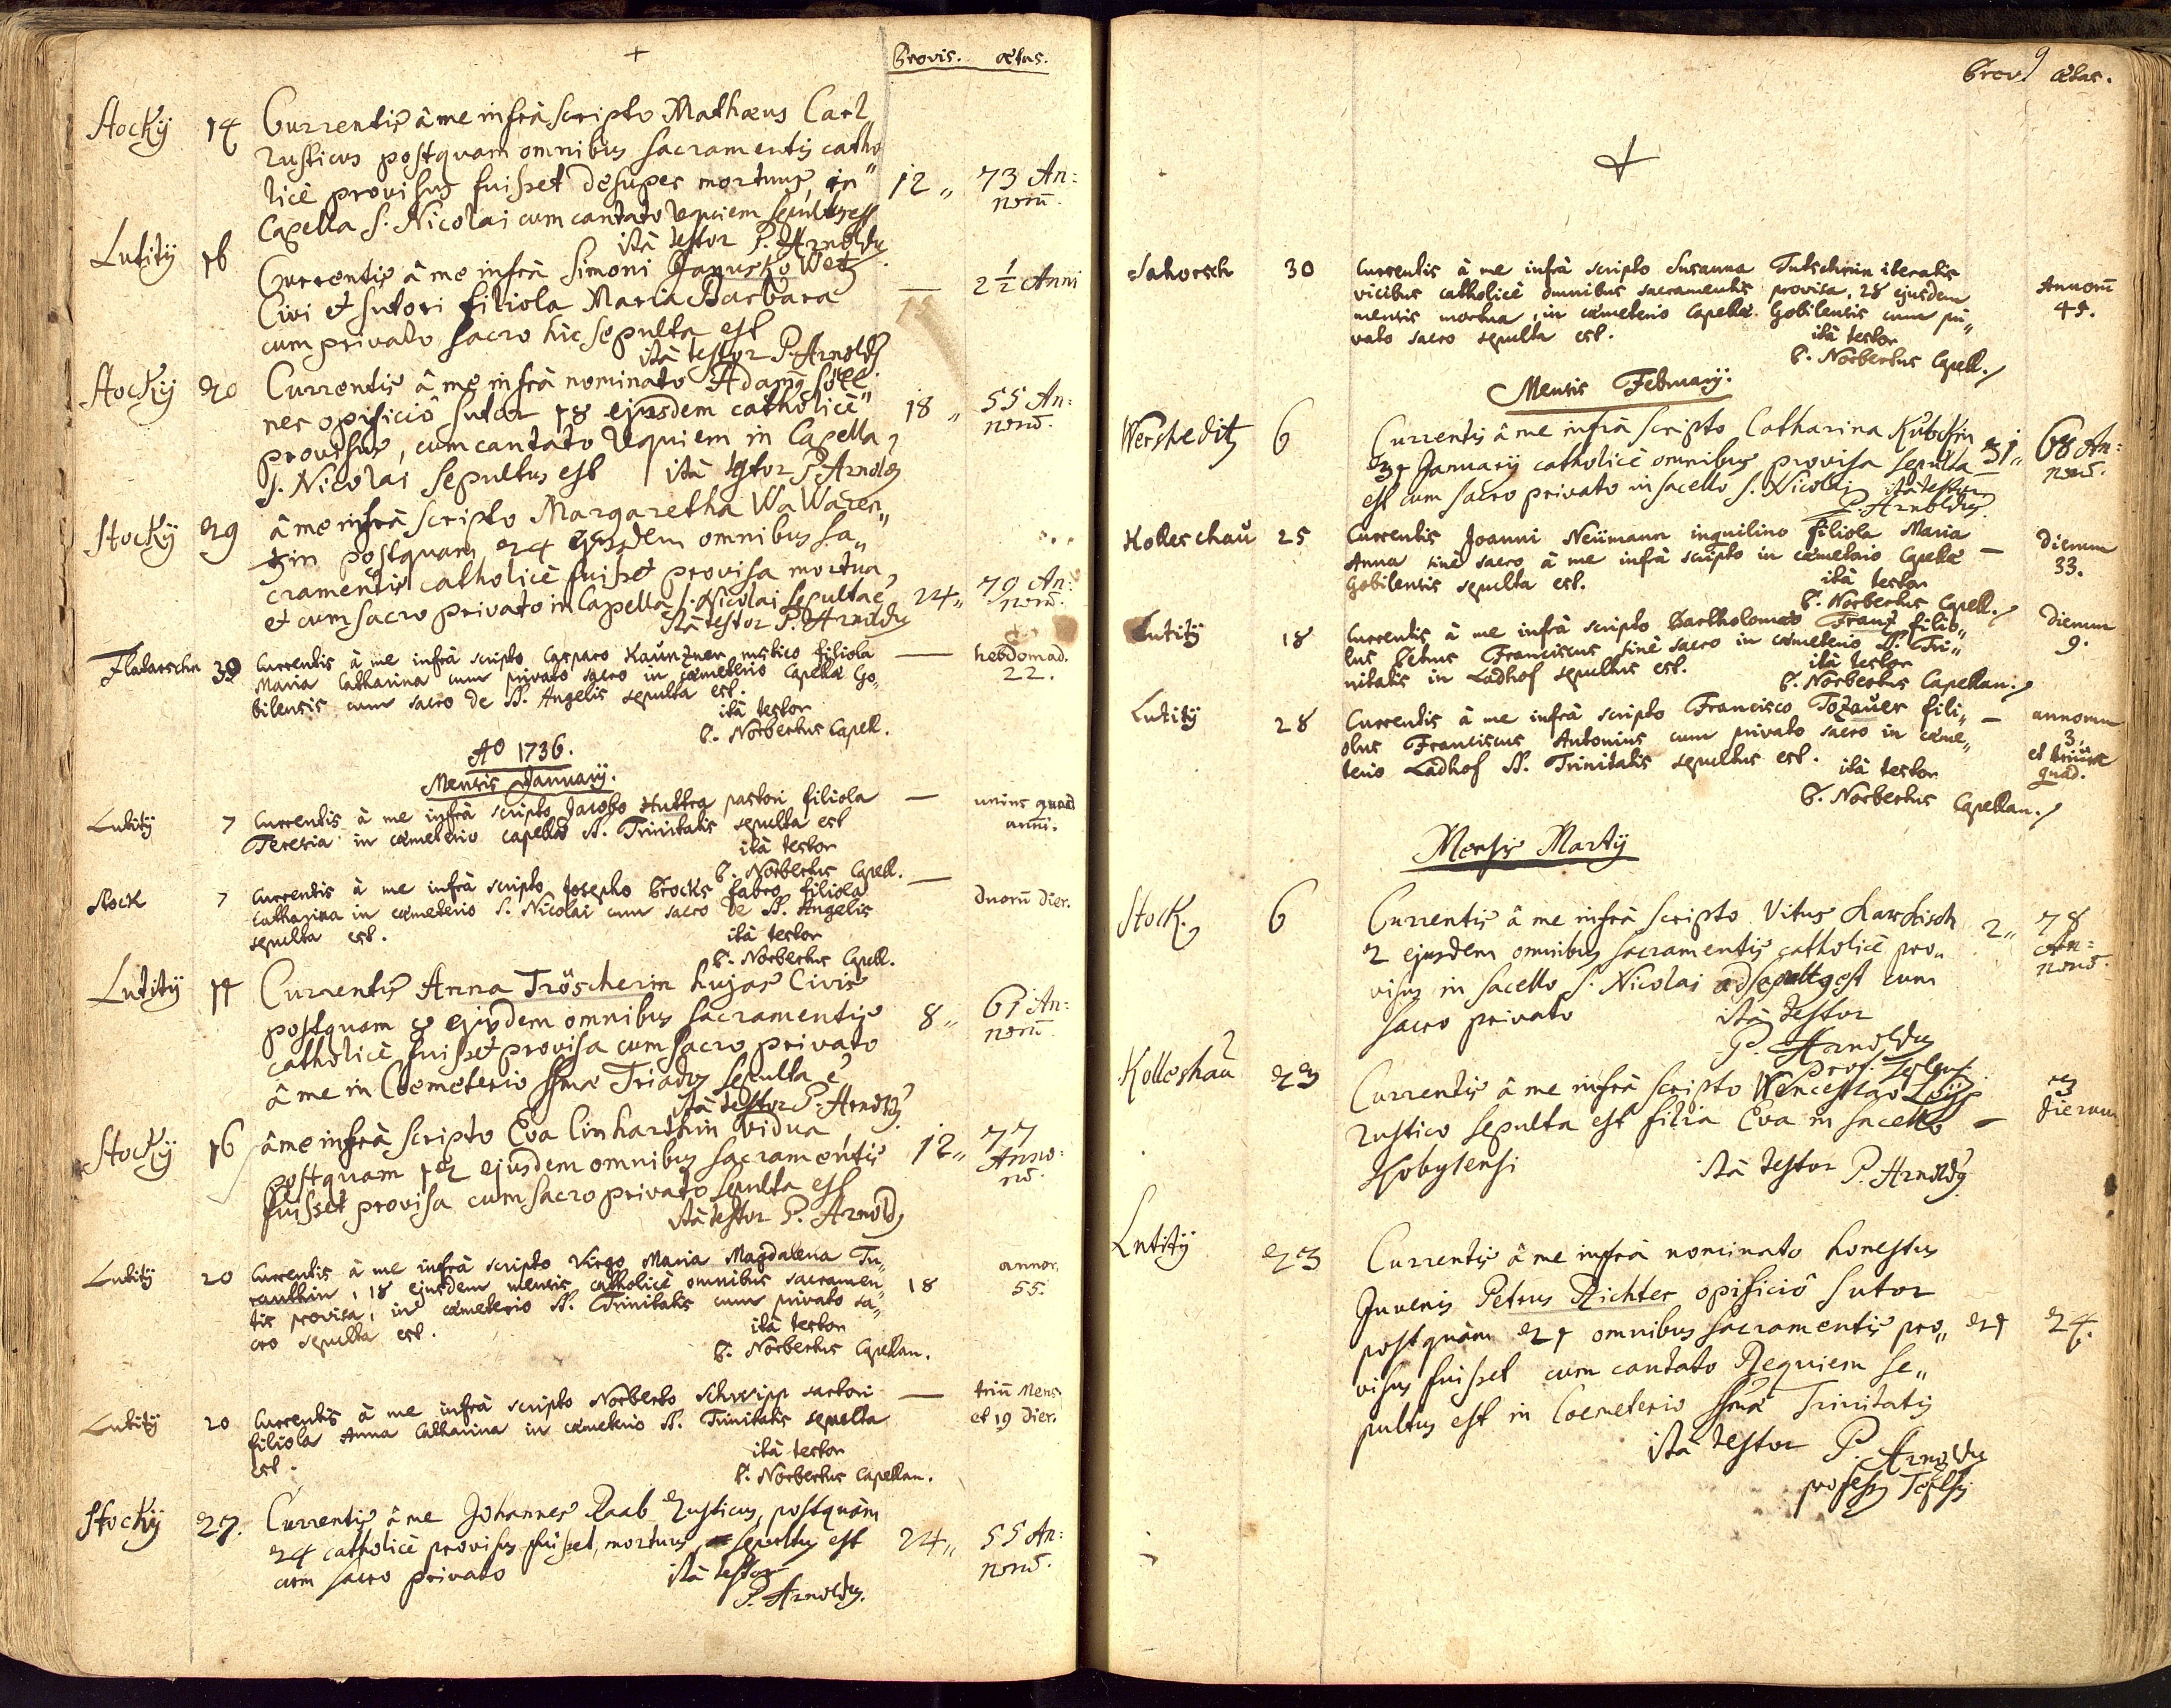 +
Provis. ætas.
Stocky 14 Currentis â me infrà scripto Mathæus Carl
rusticus postquam omnibus sacramentis catho
licè provisus fuisset desuper mortuus, in 12 „ 73 An:
norū.
Capella S. Nicolai cum cantato requiem sepultus est
ità testor P. Arnoldus
Lutity 16 Currentis â me infrà Simoni
Civi et sutori filiola Maria Barbara — 2 1/2 Anni
cum privato sacro hic sepulta est
ità testor P. Arnoldus
Stocky 20 Currentis â me infrà nominato Adamus
ner opificiô sutor 18 ejusdem catholicè 18 „ 55 An:
norū.
provisus, cum cantato requiem in Capella
S. Nicolai sepultus est ità testor P. Arnoldus
Stocky 29 â me infrà scripto Margaretha WaWacen„
zin postquam 24 ejusdem omnibus sa„
cramentis catholicè fuisset provisa mortua
et cum sacro privato in Capella S. Nicolai sepulta e 24 „ 70 An:
norū.
ità testor P. Arnoldus
Flabarschn 30 Currentis à me infrà scripto Casparo Kaünzner rustico filiola — hebdomad.
22.
Maria Catharina cum privato sacro in cæmeterio Capellæ Go„
bilensis cum sacro de SS. Angelis sepulta est.
ità testor
P. Norbertus Capell.
Aº 1736.
Mensis Januarij.
Lutity 7 Currentis à me infrà scripto Jacobo Huttra pastori filiola — unius quad
anni.
Teresia in cæmeterio capellæ SS. Trinitatis sepulta est
ità testor
P. Norbertus Capell.
Stock 7 Currentis à me infrà scripto Josepho Brocks fabro filiola — duorū dier.
Catharina in cæmeterio S. Nicolai cum sacro de SS. Angelis
sepulta est.
ità testor
P. Norbertus Capell.
Lutity 11 Currentis Anna Tröscherin hujas Civis
postquam 8 ejusdem omnibus sacramentis 8 „ 61 An:
norū.
catholicè fuisset provisa cum sacro privato
â me in Coemeterio SSmæ Triados sepulta e
ità testor P. Arnoldus
Stocky 16 â me infrà scripto Eva Linharthin vidua
postquam 12 ejusdem omnibus sacramentis 12 „ 77
Anno:
rū.
fuisset provisa cum sacro privato sepulta est
ità testor P. Arnoldus
Lutity 20 Currentis à me infrà scripto Virgo Maria Magdalena Tu„ annor.
ranthin, 18 ejusdem mensis catholicè omnibus sacramen„ 18 55.
tis provisa, in cæmeterio SS. Trinitatis cum privato sa„
cro sepulta est.
ità testor
P. Norbertus Capellan.
Lutity 20 Currentis à me infrà scripto Norberto Schwipp sartori — triū Mens
et 19 dier.
filiola Anna Catharina in cæmeterio SS. Trinitatis sepulta
est.
ità testor
P. Norbertus Capellan.
Stocky 27. Currentis â me Johannes Raab Rusticus, postquàm
24 catholicè provisus fuisset, mortuus, sepultus est 24 „ 55 An:
norū.
cum sacro privato ità testor
P. Arnoldus.
9
Prov. ætas.
+
Sahorsch 30 Currentis à me infrà scripto Susanna Tutschnin iteratis
vicibus catholicè omnibus sacramentis provisa, 28 ejusdem Annorū
45.
mensis mortua, in cæmeterio Capellæ Gobilensis cum pri„
vato sacro sepulta est. ità testor
P. Norbertus Capell.
Mensis February.
Wersheditz 6 Currentis â me infrà scripto Catharina Kubckin
31 January catholicè omnibus provisa sepulta 31 „ 68 An:
norū.
est cum sacro privato in sacello S. Nicolai ità testor
P. Arnoldus.
Koleschaŭ 25 Currentis Joanni Neümann inquilino filiola Maria
Anna sinè sacro à me infrà scripto in cæmeterio Capellæ — dierum
33.
Gobilensis sepulta est. ità testor
P. Norbertus Capell.
Lutity 18 Currentis à me infrà scripto Bartholomæo Franz filio„ dierum
9.
lus Petrus Franciscus sinè sacro in cæmeterio SS. Tri„
nitatis in Ladhof sepultus est. ità testor
P. Norbertus Capellan.
Lutity 28 Currentis à me infrà scripto Francisco Tozaŭer fili„ — annorum
3,
olus Franciscus Antonius cum privato sacro in cæme„
terio Ladhof SS. Trinitatis sepultus est. ità testor
P. Norbertus Capellan.
Mensis Martij
Stock. 6 Currentis â me infrà scripto Vitus Karchisch 2 „ 78
An:
norū.
2 ejusdem omnibus sacramentis catholicè pro„
visus in sacello S. Nicolai sepultus est cum
sacro privato ità testor
P. Arnoldus
Prof. Teplens.
Kolleshaŭ 23 Currentis â me infrà scripto Wenceslao
rustico sepulta est filia Eva in sacello — 3
dierum
Kobylensi ità testor P. Arnoldus
Lutity 23 Currentis â me infrà nominato honestus
Juvenis Petrus Richter opificiô sutor
postquàm 21 omnibus sacramentis pro„ 21 24.
visus fuisset cum cantato Requiem se„
pultus est in Coemeterio SSmæ Trinitatis
ità testor P. Arnoldus